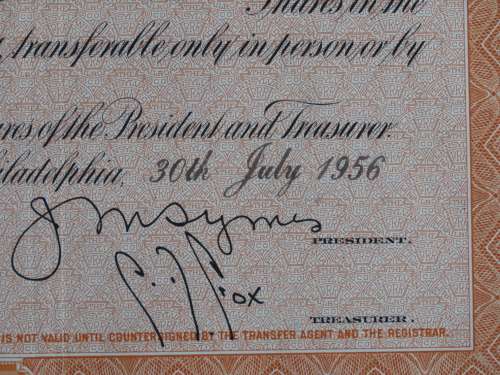 Shares in the
, transferable only in person or by
res of the President and Treasurer.
iladelphia, 30th July 1956
J M Symes
PRESIDENT.
Fox
TREASURER.
IS NOT VALID UNTIL COUNTERSIGNED BY THE TRANSFER AGENT AND THE REGISTRAR.